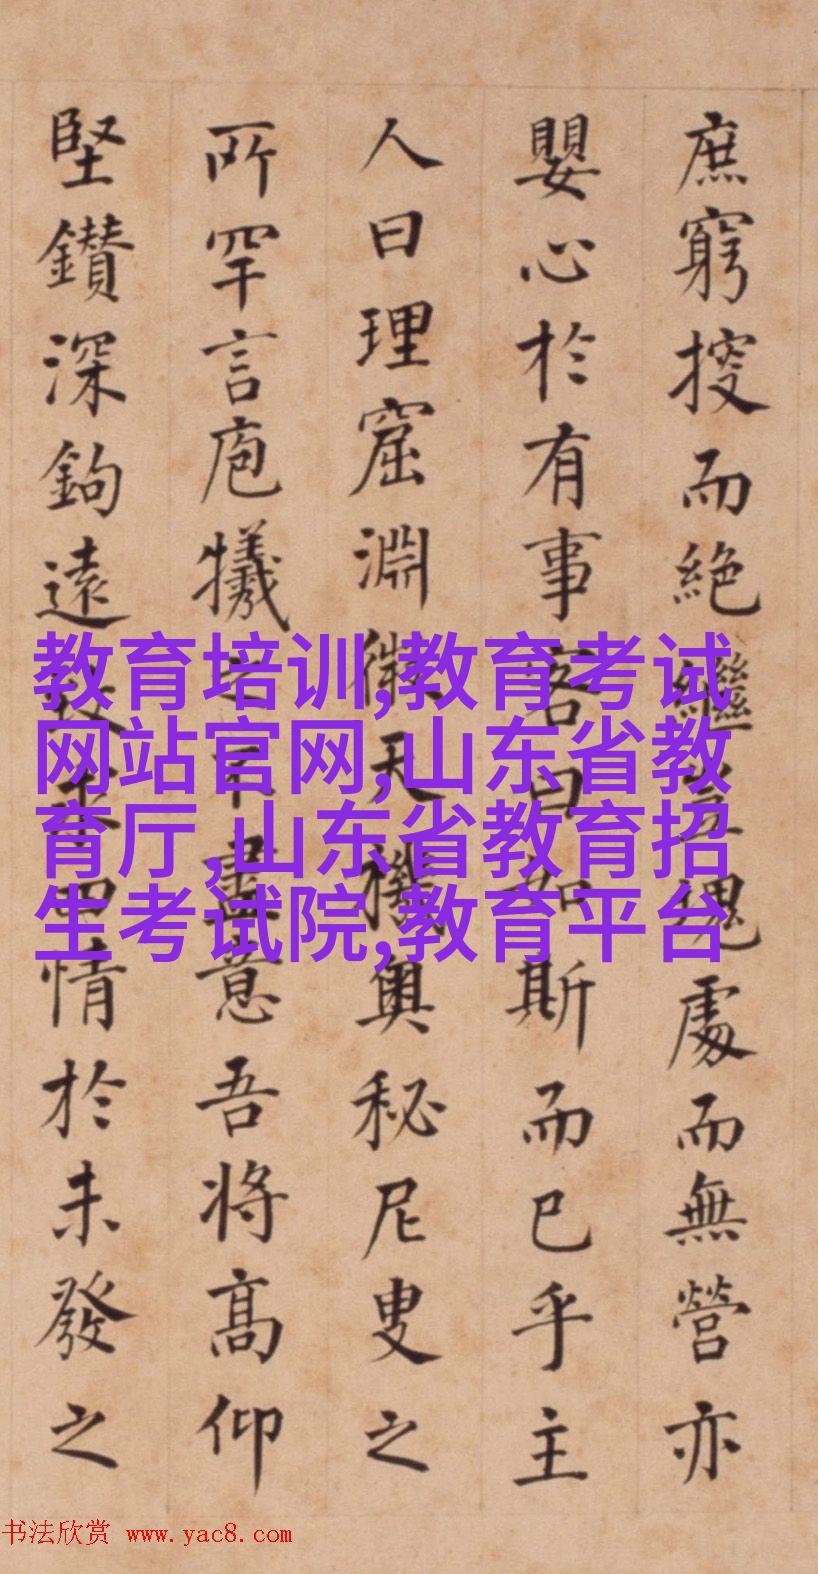 庶窮搜而絶繼塊處而無營亦
嬰心於有事客曰如斯而已乎主
人曰理窟淵微天機奧秘尼叟之
所罕言庖犧之不盡意吾將高仰
堅鑽深鉤遠致情於未發之
教育培训,教育考试
网站官网,山东省教
育厅,山东省教育招
生考试院,教育平台
书法欣赏 www.yac8.com